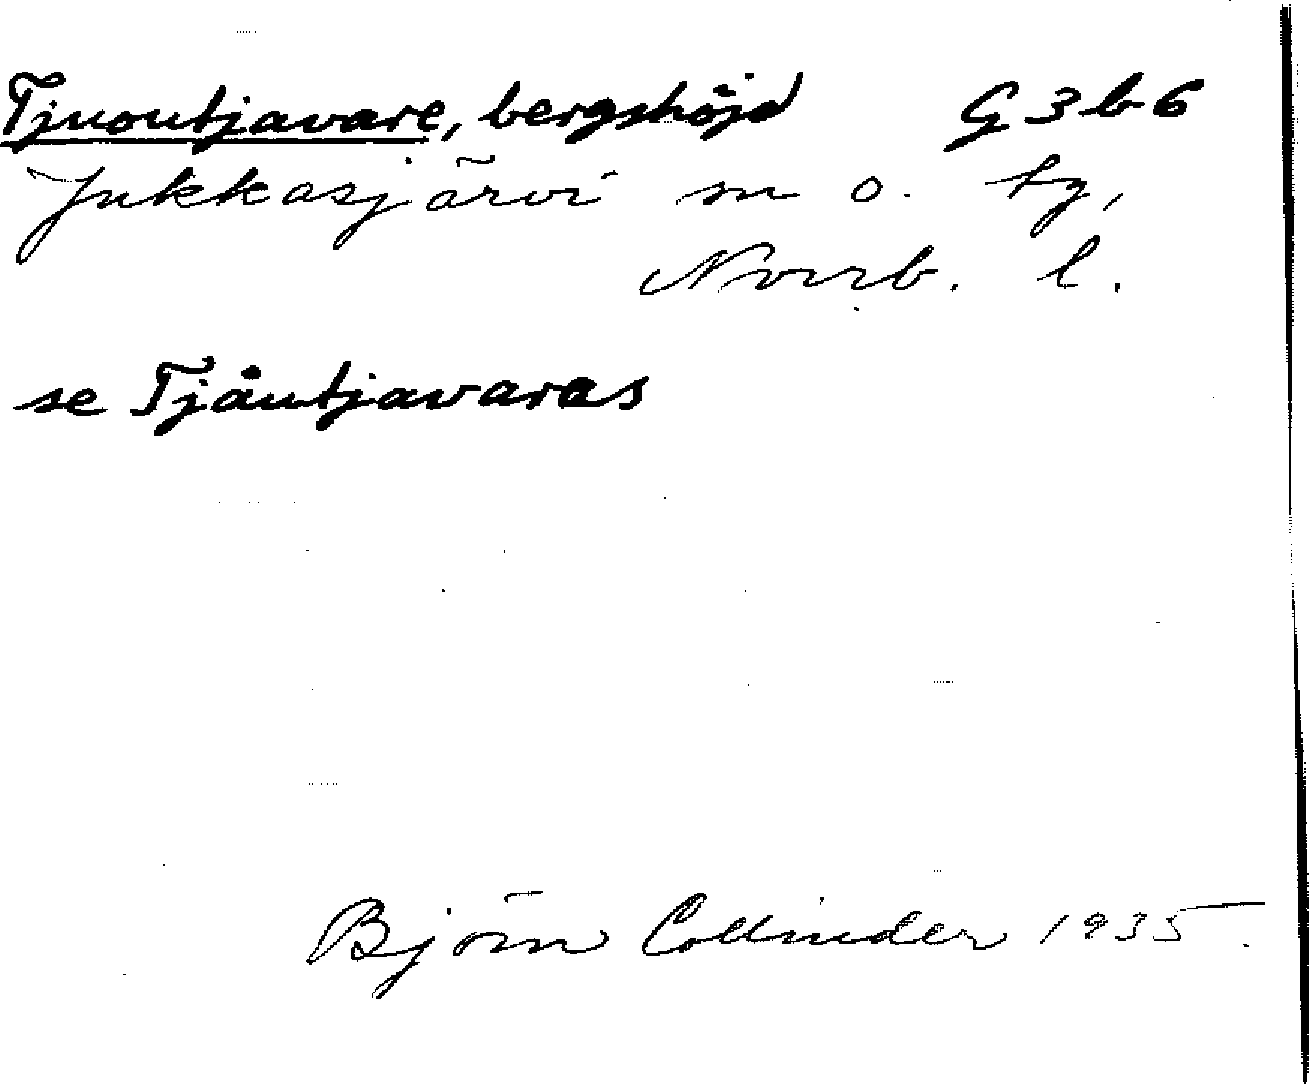 Tjuoutjavare, bergshöjd G3b6
Jukkasjärvi sn o. tg,
Norrb. l.
se Tjåutjavaras
Björn Collinder 1935.